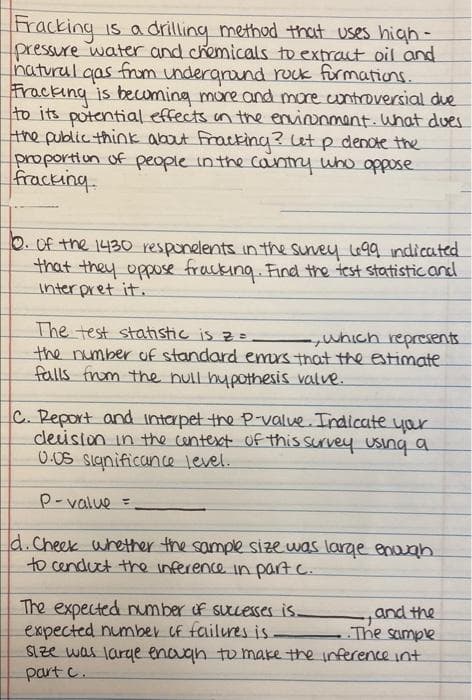 Fracking is a drilling method that uses high-
pressure water and chemicals to extract oil and
natural gas from underground rock formations.
Fracking is becoming more and more controversial due
to its potential effects on the environment. What does
the public think about Fracking? Let p denote the
proportion of people in the country who oppose
fracking.
b. Of the 1430 responelents in the survey 699 indicated
that they oppose fracking. Find the test statistic and
interpret it.
The test statistic is z = ______, which represents
the number of standard errors that the estimate
falls from the null hypothesis value.
C. Report and interpet the P-value. Indicate your
decision in the context of this survey using a
0.05 significance level.
P-value = ______
d. Check whether the sample size was large enough
to conduct the inference in part c.
The expected number of successes is ______, and the
expected number of failures is ______. The sample
size was large enough to make the inference int
part c.